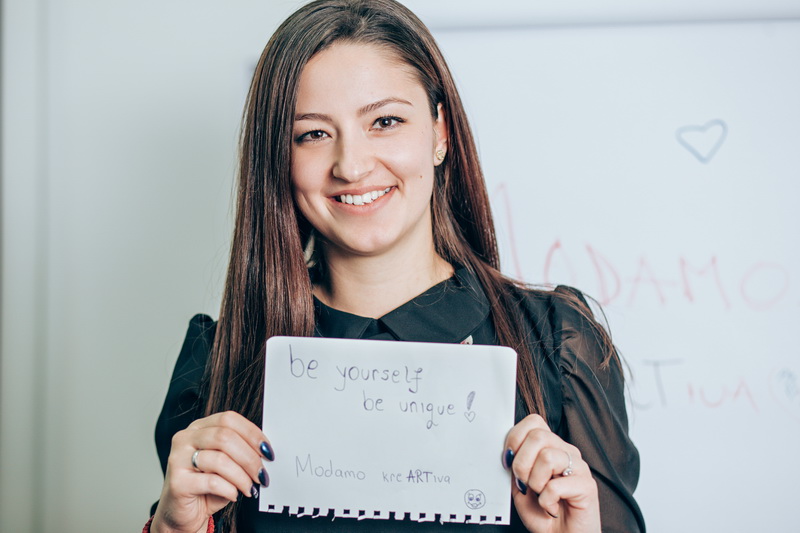 be yourself
be unique!
Modamo kreARTiva
MODAMO